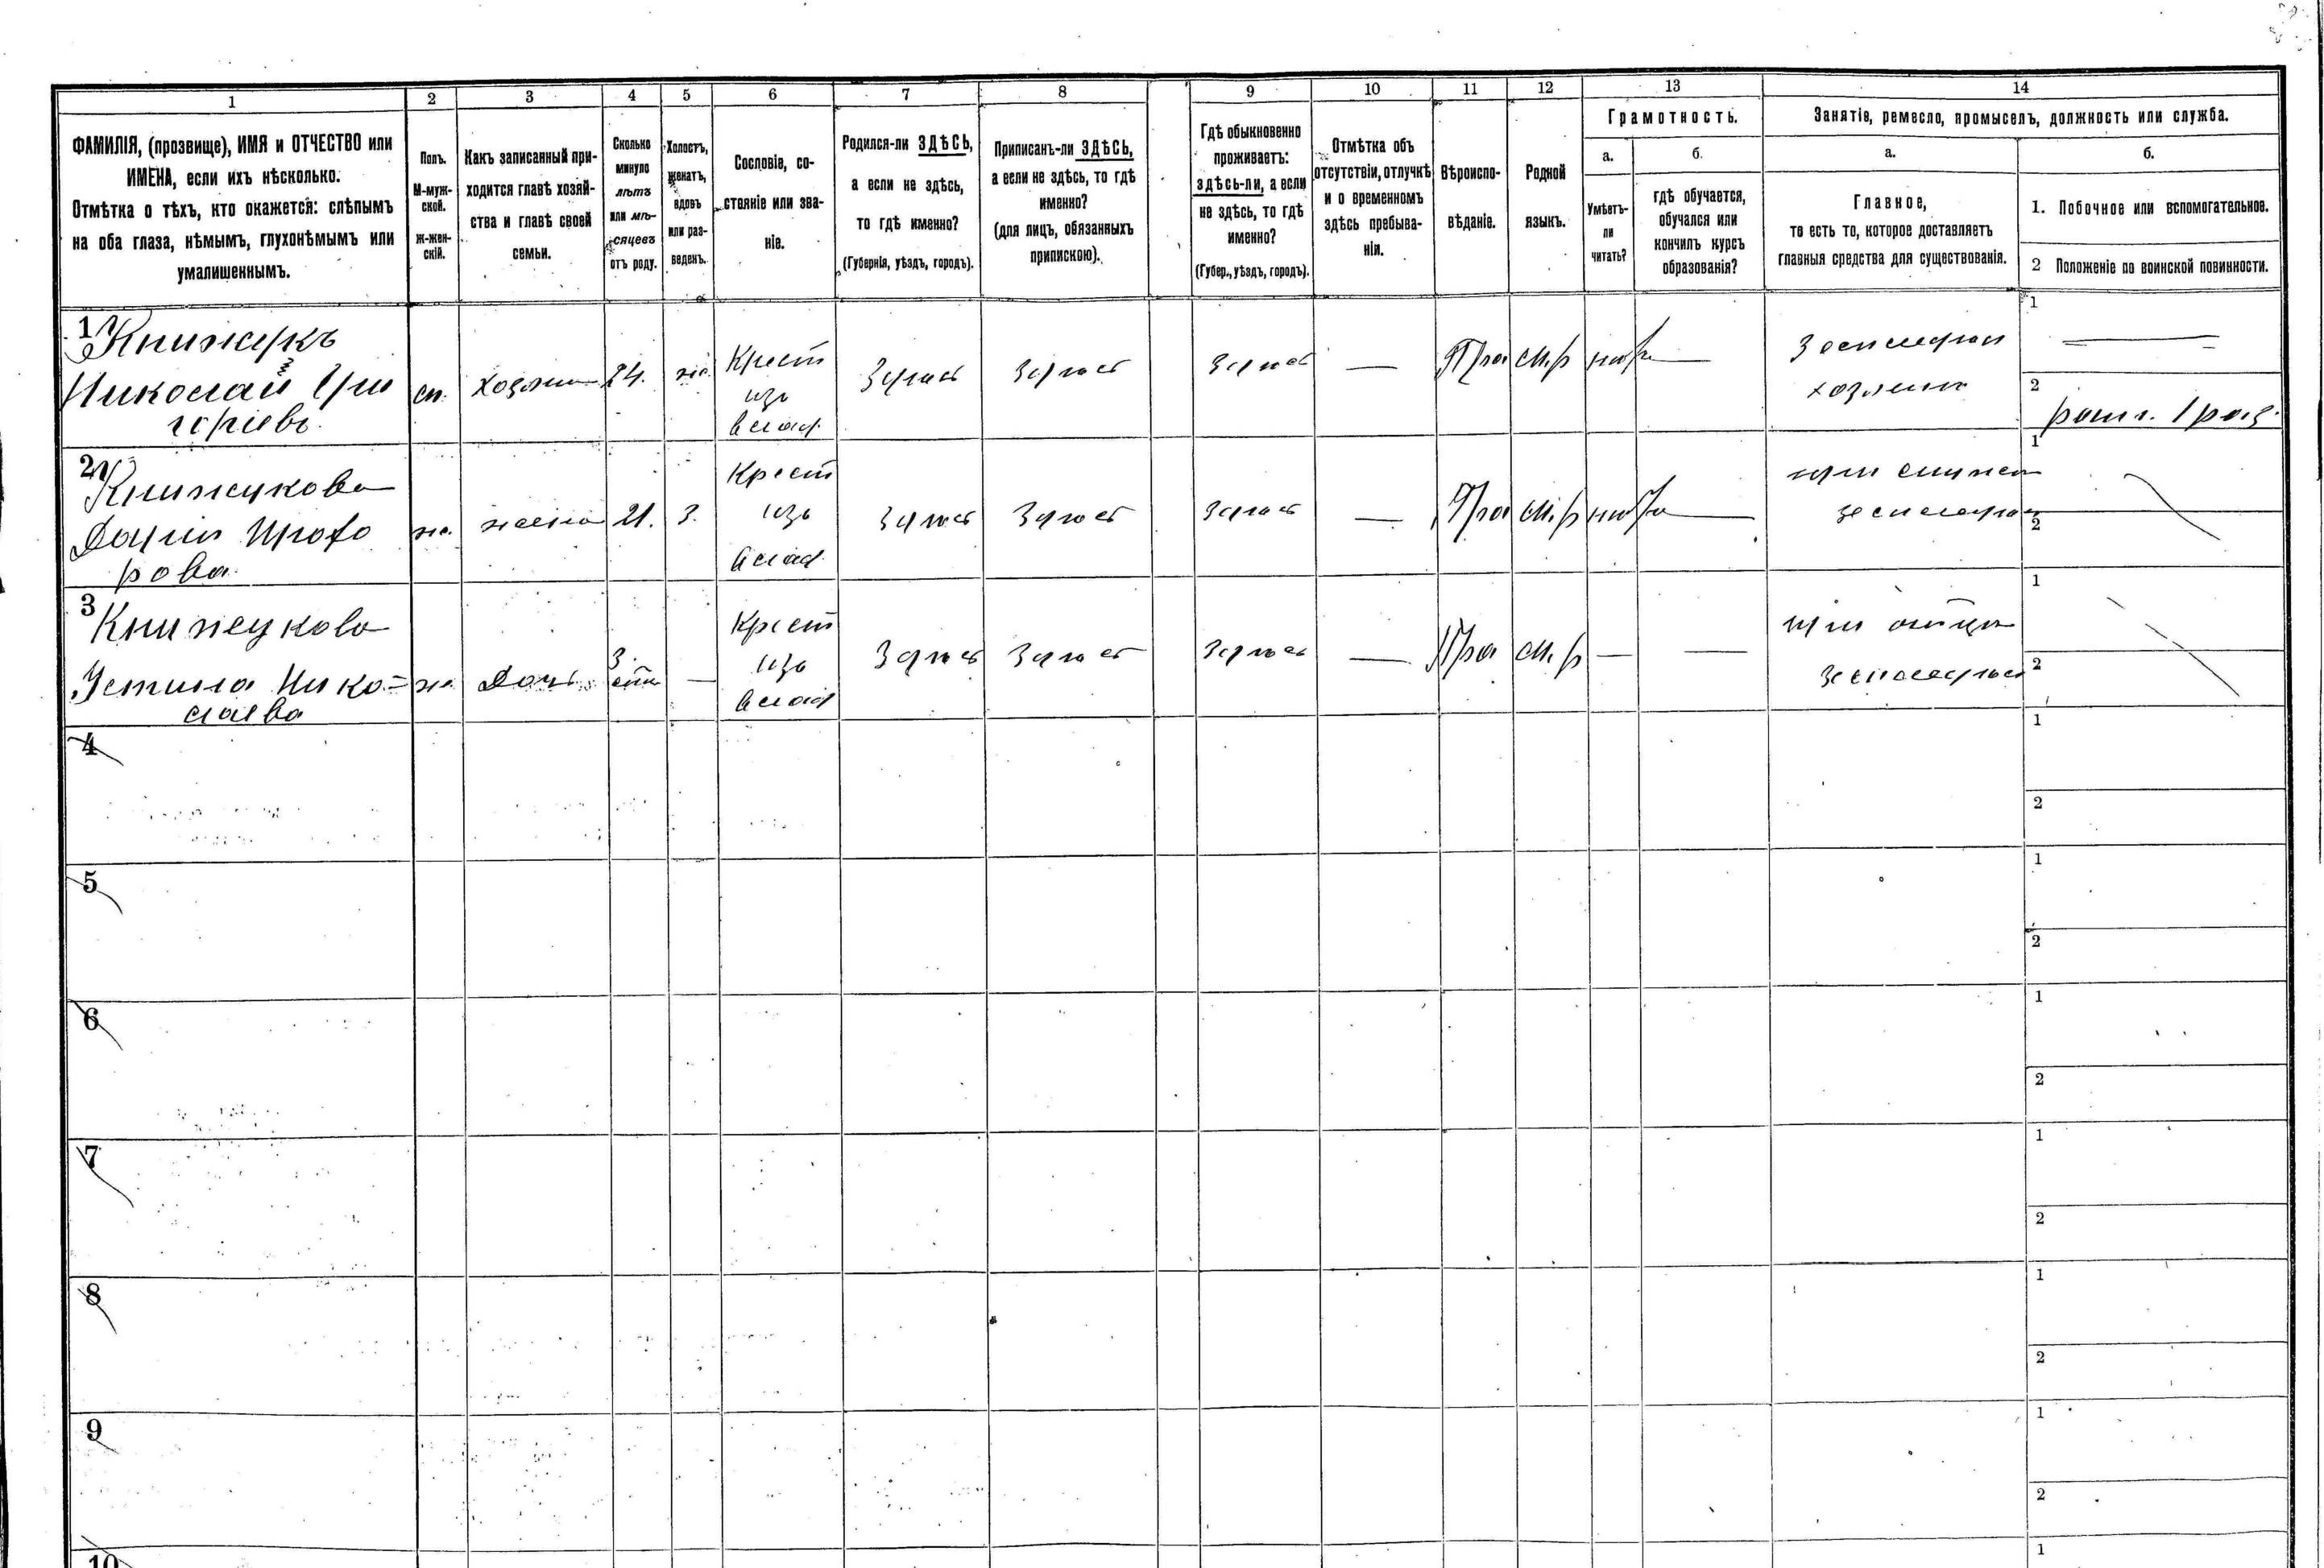 1 2 3 4 5 6 7 8 9 10 11 12 13 14
ФАМИЛІЯ, (прозвище), ИМЯ и ОТЧЕСТВО или
ИМЕНА, если ихъ нѣсколько.
Отмѣтка о тѣхъ, кто окажется: слѣпымъ
на оба глаза, нѣмымъ, глухонѣмымъ или
умалишеннымъ.
Полъ.
М-муж-
ской.
Ж-жен-
скій.
Какъ записанный при-
ходится главѣ хозяй-
ства и главѣ своей
семьи.
Сколько
минуло
лѣтъ
или мѣ-
сяцевъ
отъ роду.
Холостъ,
женатъ,
вдовъ
или раз-
веденъ.
Сословіе, со-
стояніе или зва-
ніе.
Родился-ли ЗДѢСЬ,
а если не здѣсь,
то гдѣ именно?
(Губернія, уѣздъ, городъ).
Приписанъ-ли ЗДѢСЬ,
а если не здѣсь, то гдѣ
именно?
(для лицъ, обязанныхъ
припискою).
Гдѣ обыкновенно
проживаетъ:
здѣсь-ли, а если
не здѣсь, то гдѣ
именно?
(Губер., уѣздъ, городъ).
Отмѣтка объ
отсутствіи, отлучкѣ
и о временномъ
здѣсь пребыва-
ніи.
Вѣроиспо-
вѣданіе.
Родной
языкъ.
Грамотность.
а.
Умѣетъ-
ли
читать?
б.
гдѣ обучается,
обучался или
кончилъ курсъ
образованія?
Занятіе, ремесло, промыселъ, должность или служба.
а.
Главное,
то есть то, которое доставляетъ
главныя средства для существованія.
б.
1. Побочное или вспомогательное.
2 Положеніе по воинской повинности.
1
Книжукъ
Николай Гри
горіевъ
м. хозяинъ 24. ж.
Крест
изъ
влад.
здѣсь здѣсь здѣсь — Пра м.р нѣтъ —
земледѣл
хозяинъ
1
2
ратн. 1 раз.
2
Книжукова
Дарія Прохо
рова
ж. жена 21. З.
Крест
изъ
влад.
здѣсь здѣсь здѣсь — Пра м.р нѣтъ —
при мужѣ
земледѣл
1
2
3
Книжукова
Устина Нико=
лаева
ж. Дочь 3. —
Крест
изъ
влад
здѣсь здѣсь здѣсь — Пра м.р — —
при отцѣ
земледѣл
1
2
4
1
2
5
1
2
6
1
2
7
1
2
8
1
2
9
1
2
10
1